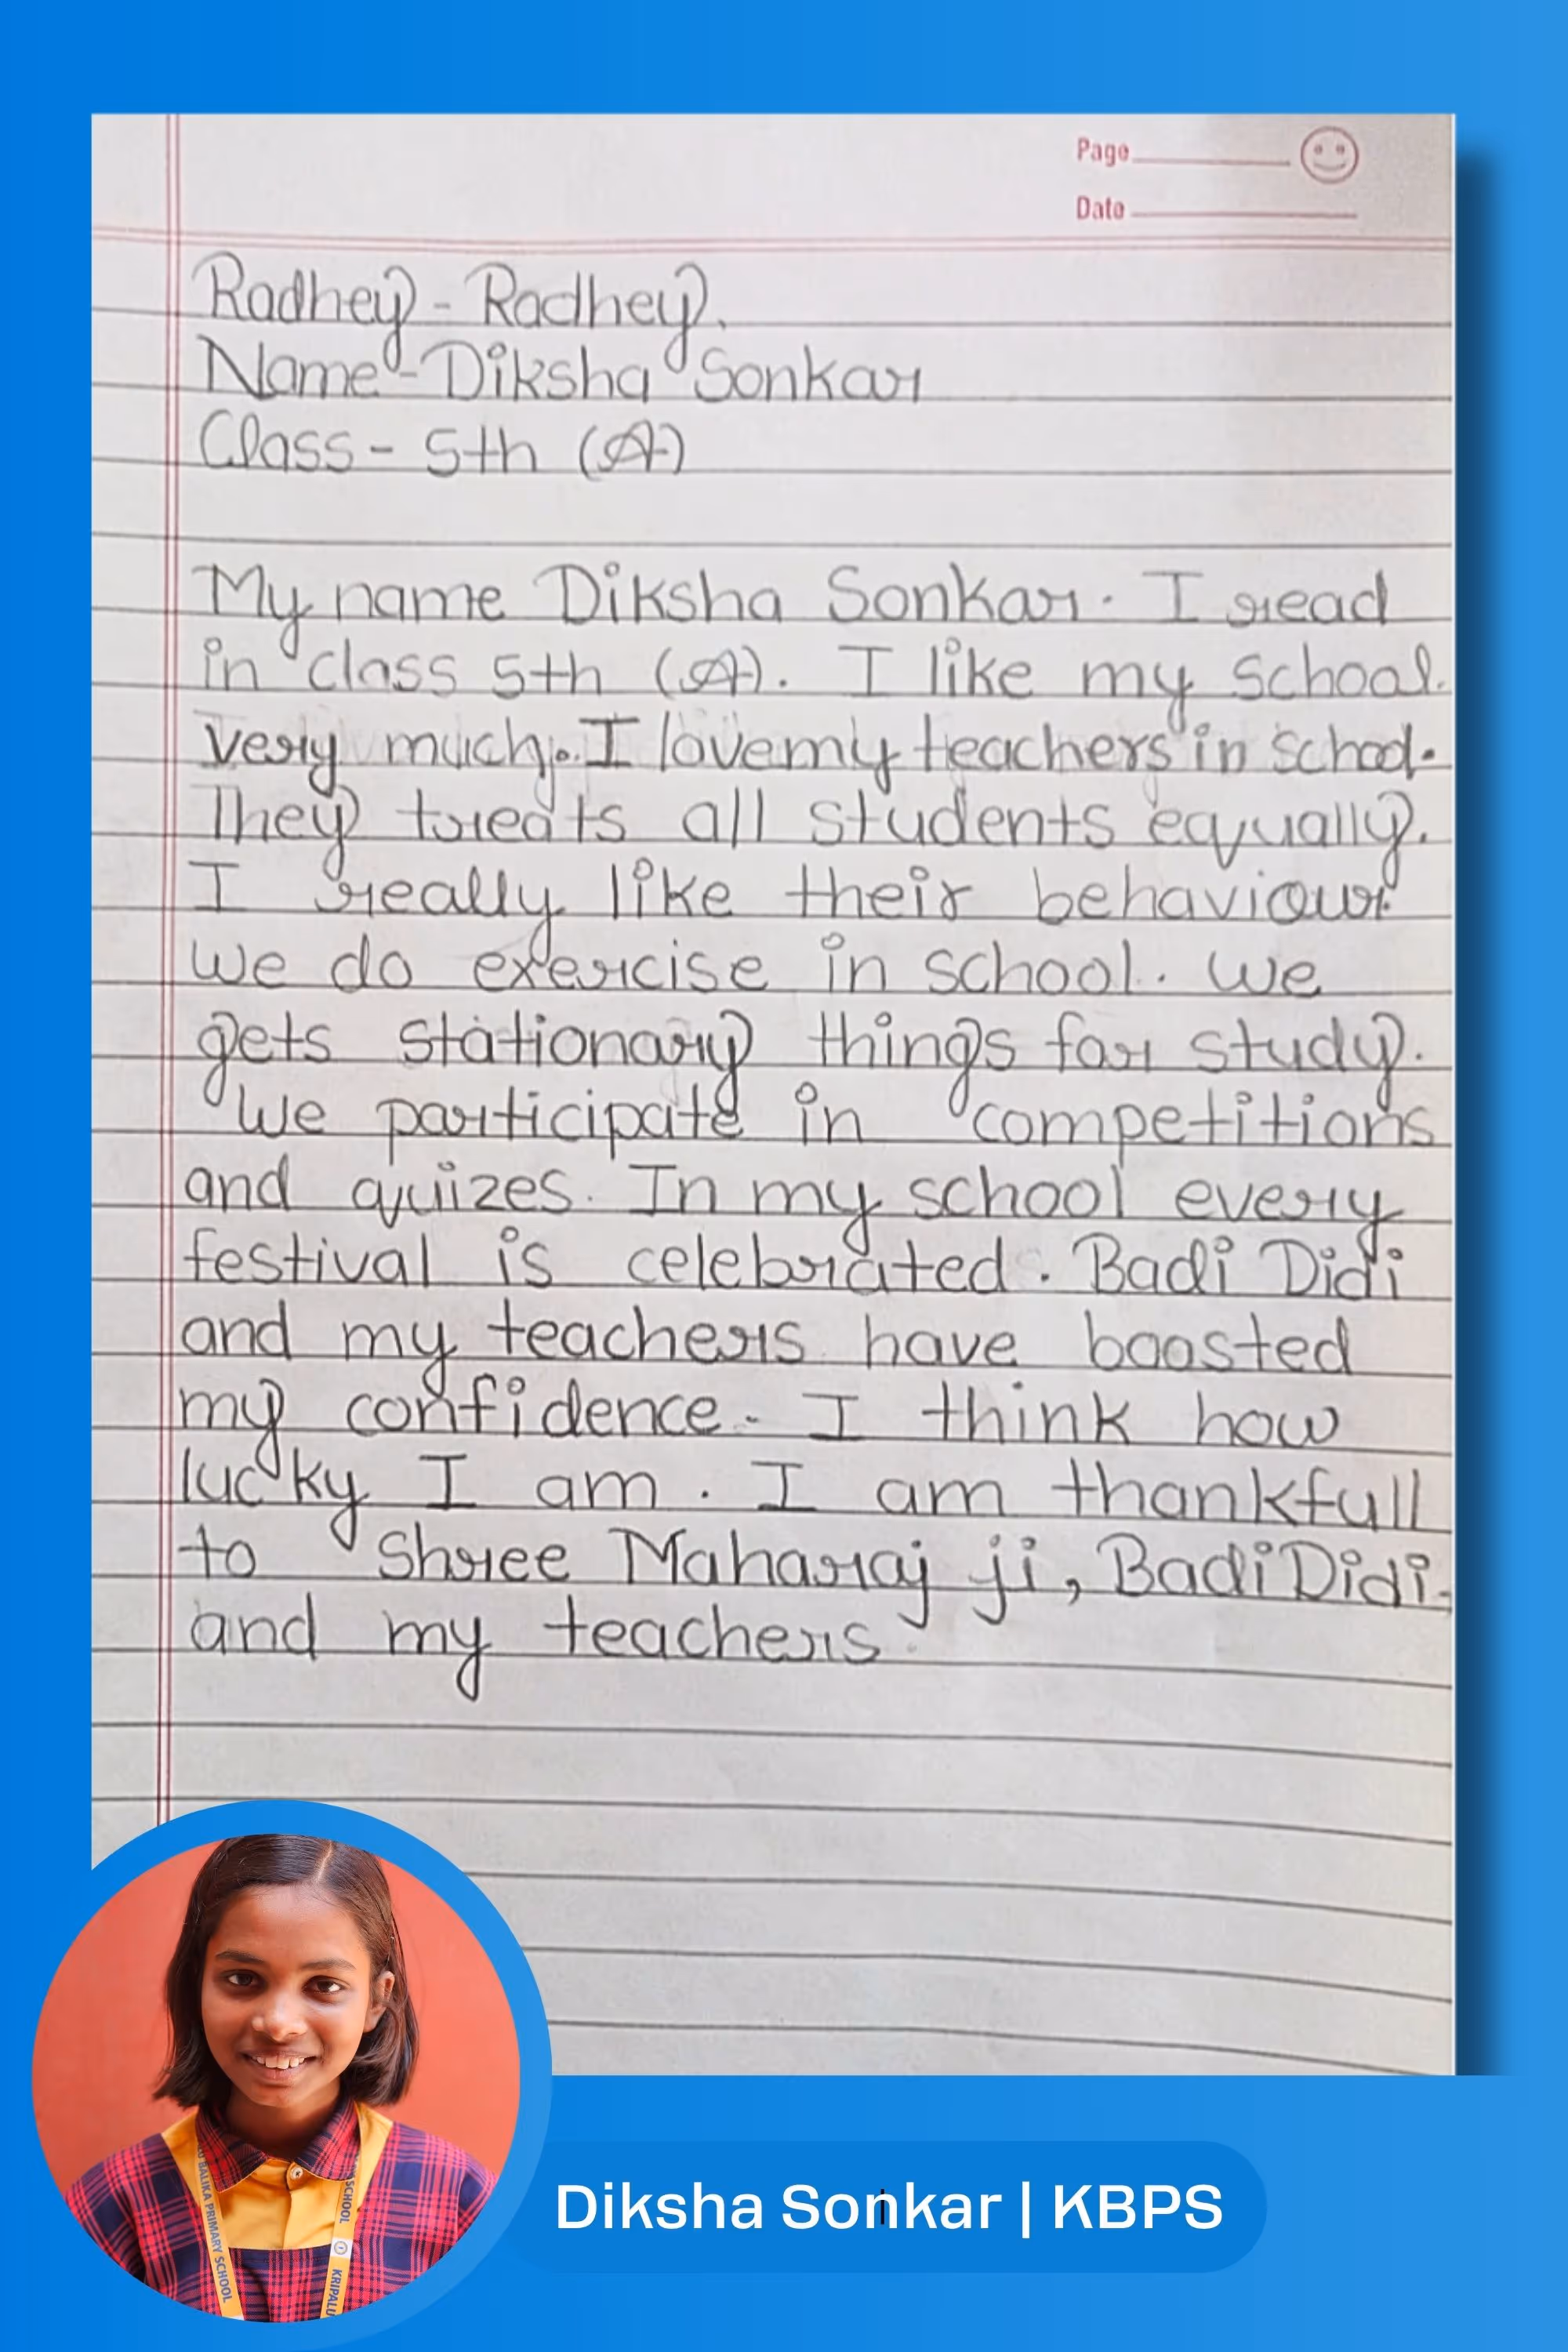 Page
Date
Radhey - Radhey.
Name - Diksha Sonkar
Class - 5th (A)
My name Diksha Sonkar. I read
in class 5th (A). I like my school.
very much. I love my teachers in school.
They treats all students equally.
I really like their behaviour.
we do exercise in school. we
gets stationary things for study.
We participate in competitions
and quizes. In my school every
festival is celebrated. Badi Didi
and my teachers have boosted
my confidence. I think how
lucky I am. I am thankfull
to Shree Maharaj ji, Badi Didi
and my teachers.
BALIKA PRIMARY SCHOOL
SCHOOL
KRIPALU
Diksha Sonkar | KBPS